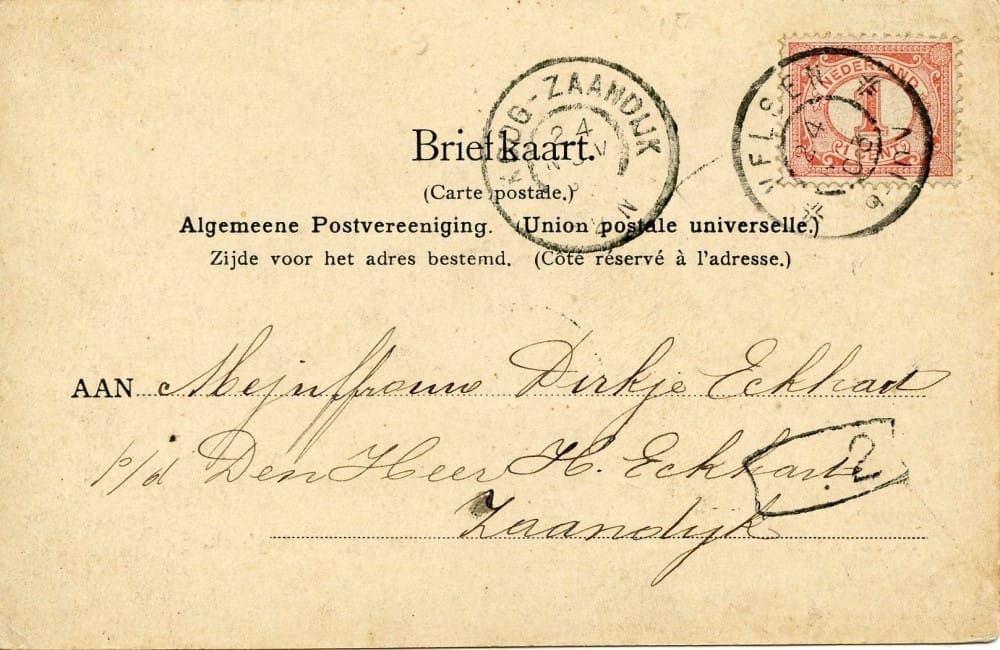 NEDERLAND
1
1 CENT
VELSEN
24
KOOG-ZAANDIJK
24
NOV
Briefkaart.
(Carte postale.)
Algemeene Postvereeniging. (Union postale universelle.)
Zijde voor het adres bestemd. (Côté réservé à l'adresse.)
AAN Mejuffrouw Dirkje Eckhart
p/d Den Heer H. Eckhart
Zaandijk
2